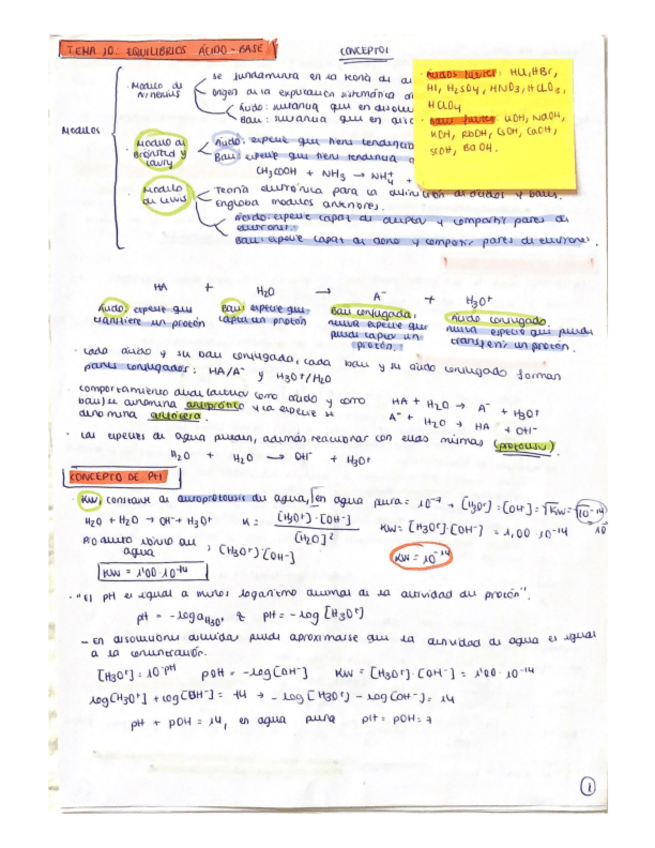 TEMA 10: EQUILIBRIOS ÁCIDO-BASE
CONCEPTOS
Modelos
Modelo de Arrhenius
se fundamenta en la teoría de
origen de la explicación sistemática
Ácido: sustancia que en
Base: sustancia que en
Ácidos fuertes: HCl, HBr,
HI, H₂SO₄, HNO₃, HClO₃,
HClO₄
Bases fuertes: LiOH, NaOH,
KOH, RbOH, CsOH, CaOH,
SrOH, BaOH.
Modelo de Brönsted y Lowry
Ácido: especie que tiene tendencia
Base: especie que tiene tendencia a
CH₃COOH + NH₃ → NH₄⁺ +
Modelo de Lewis
Teoría electrónica para la definición de ácidos y bases.
Engloba modelos anteriores.
Ácido: especie capaz de aceptar y compartir pares de
electrones.
Base: especie capaz de donar y compartir pares de electrones.
HA + H₂O → A⁻ + H₃O⁺
Ácido: especie que
transfiere un protón
Base: especie que
capta un protón
Base conjugada:
nueva especie que
puede captar un
protón.
Ácido conjugado
nueva especie que puede
transferir un protón.
· Cada ácido y su base conjugada, cada base y su ácido conjugado forman
pares conjugados: HA/A⁻ y H₃O⁺/H₂O
comportamiento dual (actuar como ácido y como
base) se denomina anfiprótico y la especie se
denomina anfótera.
HA + H₂O → A⁻ + H₃O⁺
A⁻ + H₂O → HA + OH⁻
· Las especies de agua pueden, además reaccionar con ellas mismas (protolisis).
H₂O + H₂O → OH⁻ + H₃O⁺
CONCEPTO DE PH
· Kw, constante de autoprotolisis del agua, en agua pura = 10⁻⁷ → [H₃O⁺] = [OH⁻] = √Kw = √10⁻¹⁴
H₂O + H₂O → OH⁻ + H₃O⁺
K = [H₃O⁺]·[OH⁻] / [H₂O]²
Kw = [H₃O⁺]·[OH⁻] = 1,00·10⁻¹⁴
agua
; [H₃O⁺]·[OH⁻]
Kw = 10⁻¹⁴
Kw = 1,00·10⁻¹⁴
· "El pH es igual a menos logaritmo decimal de la actividad del protón".
pH = -log aH₃O⁺ pH = -log [H₃O⁺]
- En disoluciones diluidas puede aproximarse que la actividad de agua es igual
a la concentración.
[H₃O⁺] = 10⁻ᵖᴴ pOH = -log[OH⁻] Kw = [H₃O⁺]·[OH⁻] = 1,00·10⁻¹⁴
log[H₃O⁺] + log[OH⁻] = -14 → -log[H₃O⁺] - log[OH⁻] = 14
pH + pOH = 14, en agua pura pH = pOH = 7
1